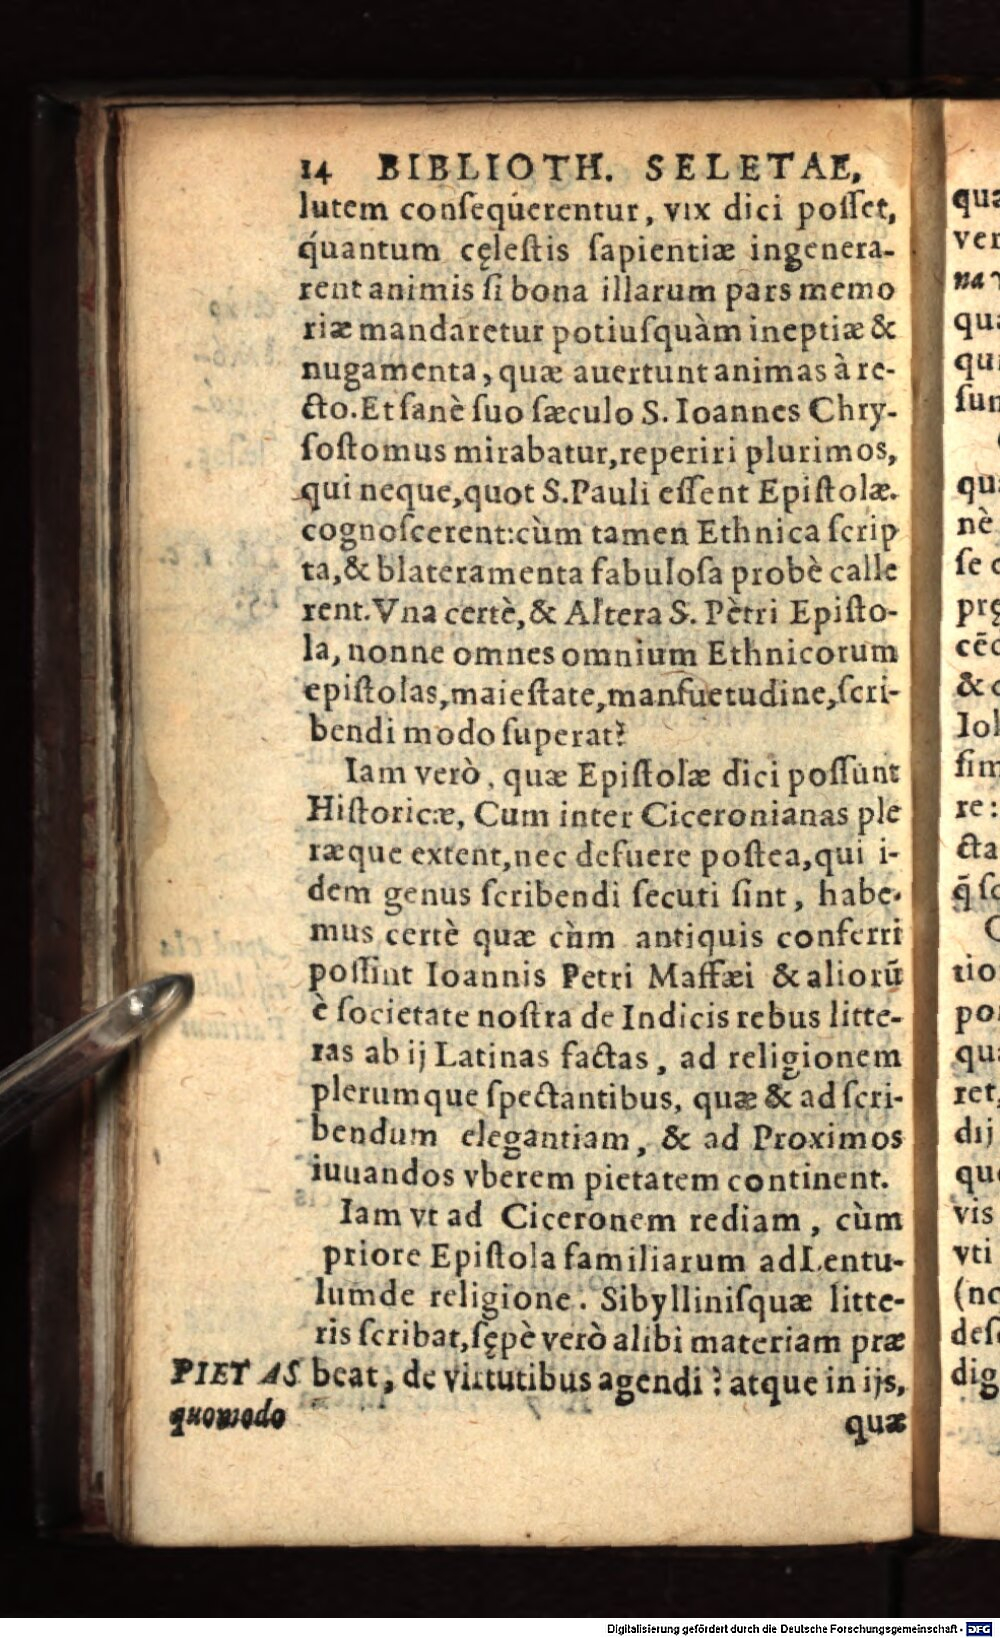 14 BIBLIOTH. SELETAE,
lutem conſequerentur, vix dici poſſet,
quantum cęleſtis ſapientiæ ingenera-
rent animis ſi bona illarum pars memo
riæ mandaretur potiuſquàm ineptiæ &
nugamenta, quæ auertunt animas à re-
cto. Et ſanè ſuo ſæculo S. Ioannes Chry-
ſoſtomus mirabatur, reperiri plurimos,
qui neque, quot S. Pauli eſſent Epiſtolæ.
cognoſcerent: cùm tamen Ethnica ſcrip
ta, & blateramenta fabuloſa probè calle
rent. Vna certè, & Altera S. Pètri Epiſto-
la, nonne omnes omnium Ethnicorum
epiſtolas, maieſtate, manſuetudine, ſcri-
bendi modo ſuperat?
Iam verò, quæ Epiſtolæ dici poſſunt
Hiſtoricæ, Cum inter Ciceronianas ple
ræque extent, nec defuere poſtea, qui i-
dem genus ſcribendi ſecuti ſint, habe-
mus certè quæ cùm antiquis conferri
poſſint Ioannis Petri Maffæi & aliorū
è ſocietate noſtra de Indicis rebus litte-
ras ab ij Latinas factas, ad religionem
plerumque ſpectantibus, quæ & ad ſcri-
bendum elegantiam, & ad Proximos
iuuandos vberem pietatem continent.
Iam vt ad Ciceronem rediam, cùm
priore Epiſtola familiarum ad Lentu-
lum de religione. Sibylliniſquæ litte-
ris ſcribat, ſępè verò alibi materiam præ
PIETAS beat, de virtutibus agendi? atque in ijs,
quomodo quæ
qua
ver
na
qua
qui
ſun
qua
nè
ſe
prę
cēd
&
Iol
ſim
re:
cta
q̃ ſc
C
tio
po
qua
ret,
dij
que
vis
vti
(no
deſ
dig
Digitalisierung gefördert durch die Deutsche Forschungsgemeinschaft - DFG